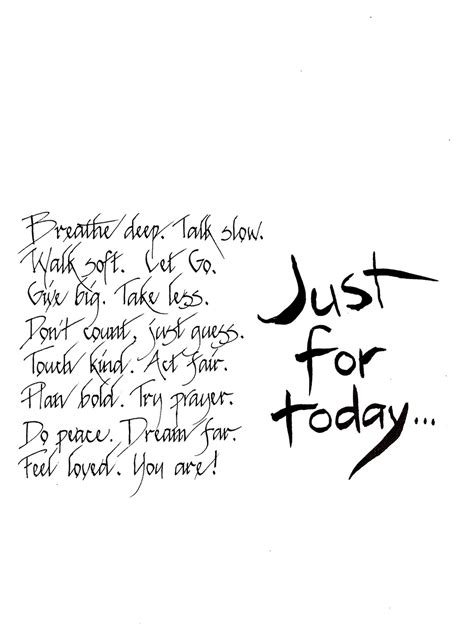 Breathe deep. Talk slow.
Walk soft. Let Go.
Give big. Take less.
Don't count, just guess.
Touch kind. Act fair.
Plan bold. Try prayer.
Do peace. Dream far.
Feel loved. You are!
Just
for
today...